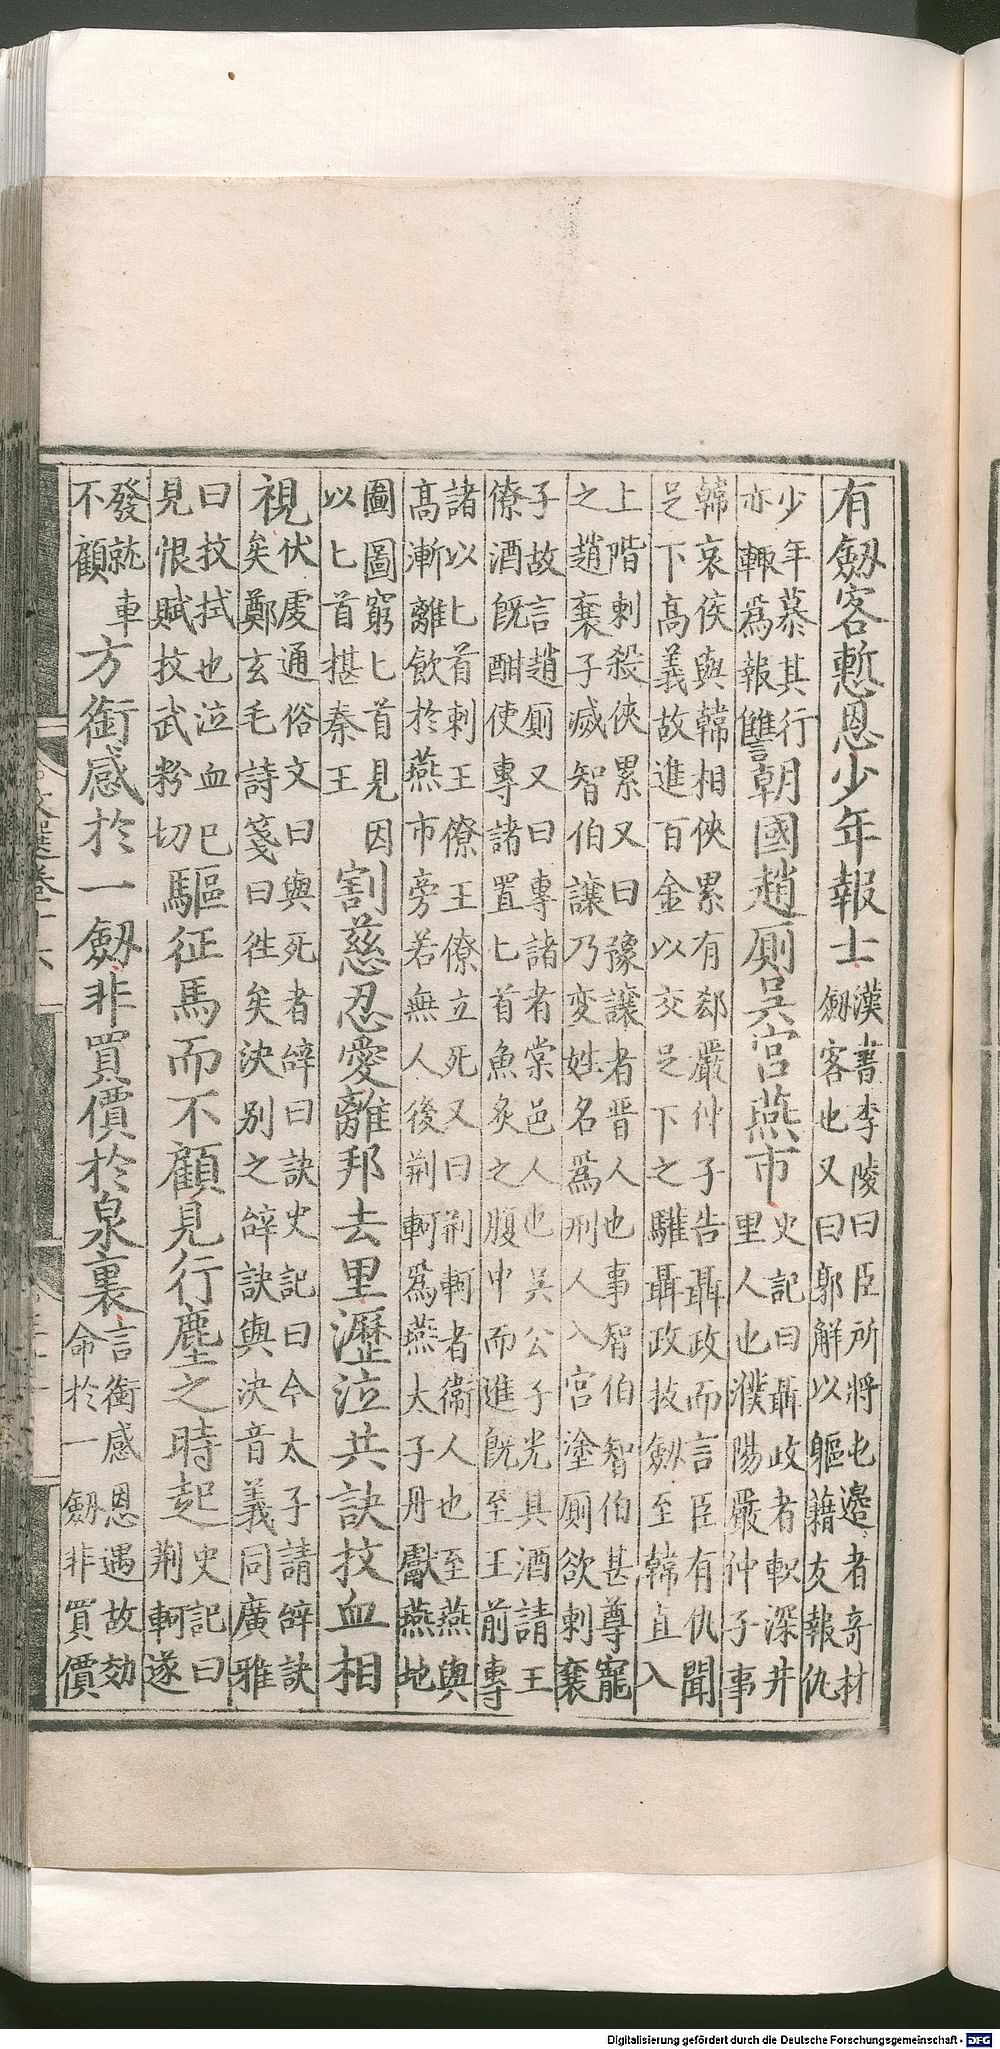 有劒客慙恩少年報士漢書李陵曰臣所將屯邉者竒材
劒客也又曰郭解以軀藉友報仇
少年慕其行
亦輙爲報讎朝國趙厠吳宮燕市史記曰聶政者軹深井
里人也濮陽嚴仲子事
韓哀侯與韓相俠累有郄嚴仲子告聶政而言臣有仇聞
足下高義故進百金以交足下之驩聶政拔劒至韓直入
上階刺殺俠累又曰豫讓者晋人也事智伯智伯甚尊寵
之趙襄子滅智伯讓乃変姓名爲刑人入宮塗厠欲刺襄
子故言趙厠又曰專諸者棠邑人也吳公子光具酒請王
僚酒既酣使專諸置匕首魚炙之腹中而進既至王前專
諸以匕首刺王僚王僚立死又曰荆軻者衛人也至燕與
高漸離飲於燕市旁若無人後荆軻爲燕太子丹獻燕地
圖圖窮匕首見因
以匕首揕秦王割慈忍愛離邦去里瀝泣共訣抆血相
視伏䖍通俗文曰與死者辝曰訣史記曰今太子請辝訣
矣鄭玄毛詩箋曰徃矣決別之辝訣與決音義同廣雅
曰抆拭也泣血已
見恨賦抆武粉切驅征馬而不顧見行塵之時起史記曰
荆軻遂
發就車
不顧方銜感於一劒非買價於泉裏言銜感恩遇故効
命於一劒非買價
文選卷十六
Digitalisierung gefördert durch die Deutsche Forschungsgemeinschaft - DFG